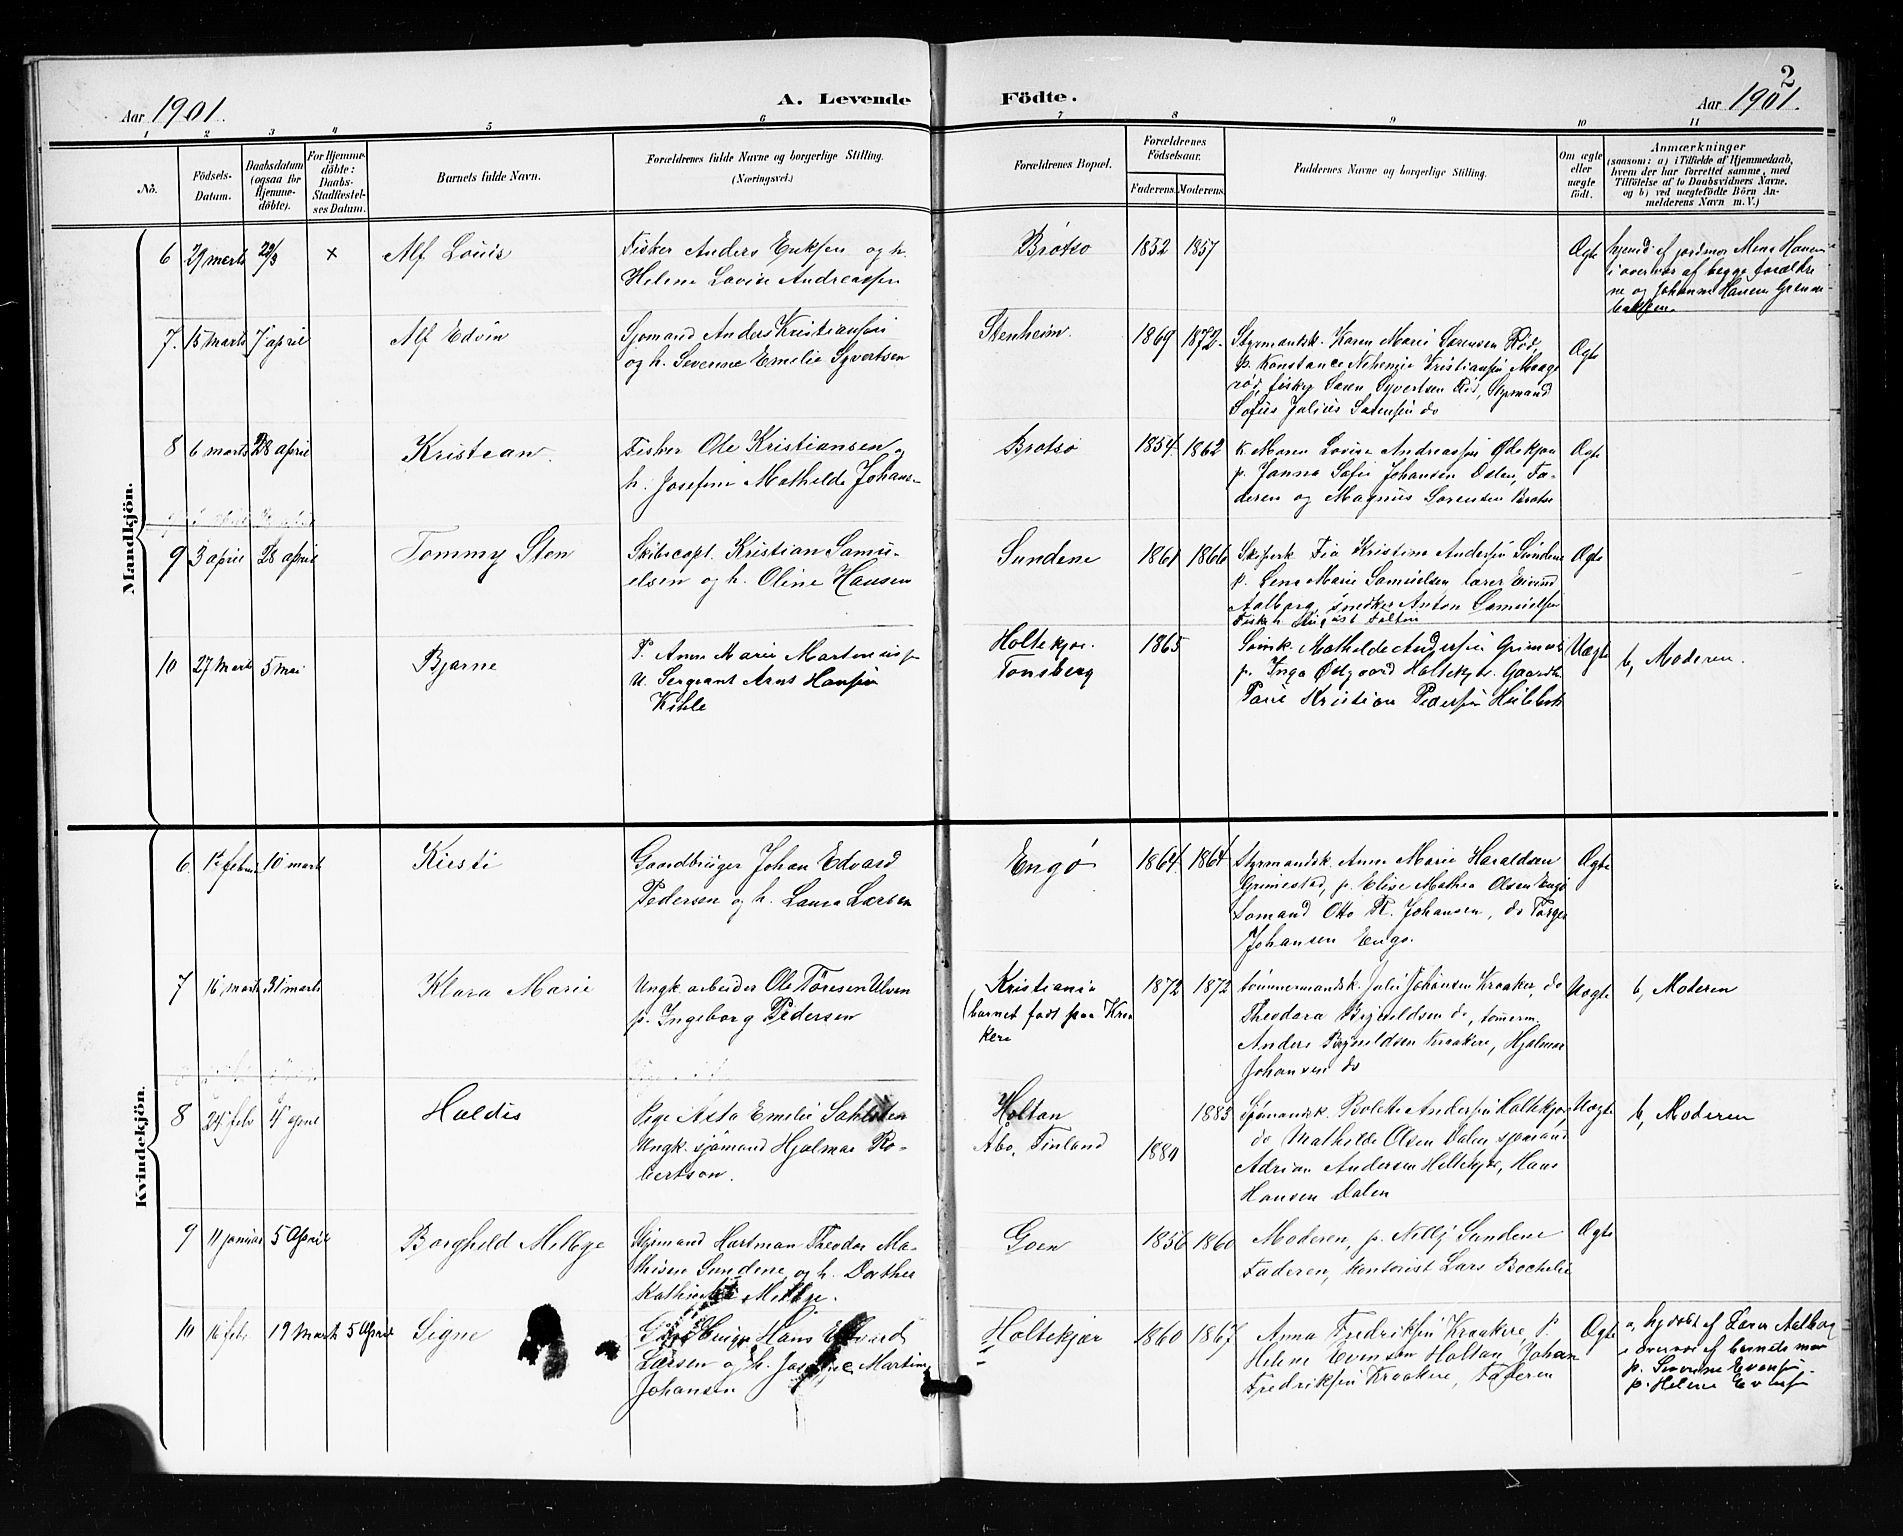 2
Aar 1901.
A. Levende Födte.
Aar 1901.
1 2 3 4 5 6 7 8 9 10 11
No.
Födsels-
Datum.
Daabsdatum
(ogsaa for
Hjemme-
döbte).
For Hjemme-
döbte:
Daabs-
Stadfæstel-
ses Datum.
Barnets fulde Navn.
Forældrenes fulde Navne og borgerlige Stilling.
(Næringsvei.)
Forældrenes Bopæl.
Forældrenes
Födselsaar.
Faderens. Moderens.
Faddernes Navne og borgerlige Stilling.
Om ægte
eller
uægte
födt.
Anmærkninger
(saasom: a) i Tilfælde af Hjemmedaab,
hvem der har forrettet samme, med
Tilföielse af to Daabsvidners Navne.
og b) ved uægtefödte Börn An-
melderens Navn m. V.)
Mandkjön.
6 29 marts 29/3 × Alf Louis
Fisker Anders Eriksen og h.
Helene Lovise Andreassen
Brøtsø 1852 1857
Ægte
hjemd. af jordmor Mena Hansen
i overvær af begge forældre
ne og Johanne Hansen
7. 15 marts 7 april Alf Edvin
Sjømand Anders Kristiansen
og h. Severine Emelie Syvertsen
Stenheim. 1869 1872.
Styrmandsk. Karen Marie Sørensen Rød,
p. Konstance Kristiansen
rød, fisker Søren Syvertsen Rød, Styrmand
Sofus Julius Sørensen do
Ægte
8 6 marts 28 april Kristian.
Fisker Ole Kristiansen og
h. Josefine Mathilde Johans-
Brøtsø 1854 1862
K Maren Lovise Andreassen
p. Janna Sofie Johansen Dalen, Fa-
deren og Magnus Sørensen Brøtsø
Ægte
9 3 april 28 april Tommy Sten
Skibscapt. Kristian Samu-
elsen og h. Oline Hansen
Sundene 1861 1866
Skipsrk. Fia Kristine Andersen Sundene
p. Lena Marie Samuelsen lærer Eivind
Aalborg, snedker Anton Samuelsen
Ægte
10 27 Marts 5 Mai Bjarne
P. Anne Marie
U. Sergeant Arnt Hansen
Kihle
Holtekjær.
Tønsberg
1865
Sömk. Mathilde Andersen
p. Inga Østgaard Holtekjær.
Kristian Pedersen
Uægte
b, Moderen.
Kvindekjön.
6. 12 febru 10 marts Kirsti
Gaardbruger Johan Edvard
Pedersen og h. Laura Larsen
Engø 1864 1864
Styrmandsk. Anne Marie Haraldsen
Grimestad, p. Elise Mathea Olsen Engø
Sømand Otto Johansen, do Torger
Johansen Engø.
Ægte
7 16 marts 31 marts Klara Marie
Ungk. arbeider Ole Tönesen Ulven
p. Ingeborg Pedersen
Kristiania
(barnet født paa Kraa
kere
1872 1872
tømmermandsk. Julie Johansen Kraaker, do
Theodora do, tømerm.
Anders Kraakere, Hjalmar
Johansen do
Uægte
b, Moderen
8 24 feb 4 april Haldis
Pige Asta Emelie
Ungk. sjömand Hjalmar Ro-
bertson.
Holtan
Åbo, Finland
1883
1880
Sjömandsk. Bolette Andersen Holtekjær
do Mathilde Olsen Dalen sjomand
Adrian Andersen Holtekjær, Hans
Hansen Dalen
Uægte
b, Moderen
9 11 januar 5 April Borghild Melbye
Styrmand Hartman Theodor Ma-
thisen Sundene og h. Dorthea
Kathinka Melbye.
Goen 1856 1860
Moderen, p. Nelly Sundene
Faderen, Kontorist Lars
Ægte
10 16 feb. 19 Mart 5 April Signe
Hans Edvard
Larsen og h. Josefine Martine
Johansen
Holtekjær 1860 1867
Anna Fredriksen Kraakere, p.
Helene Evensen Holtan Johan
Fredriksen Kraakere, Faderen
Ægte
a, hjdöbt af Lærer Aalborg
i overvær af barnets mor
p. Severine Evensen
p. Helene Evensen